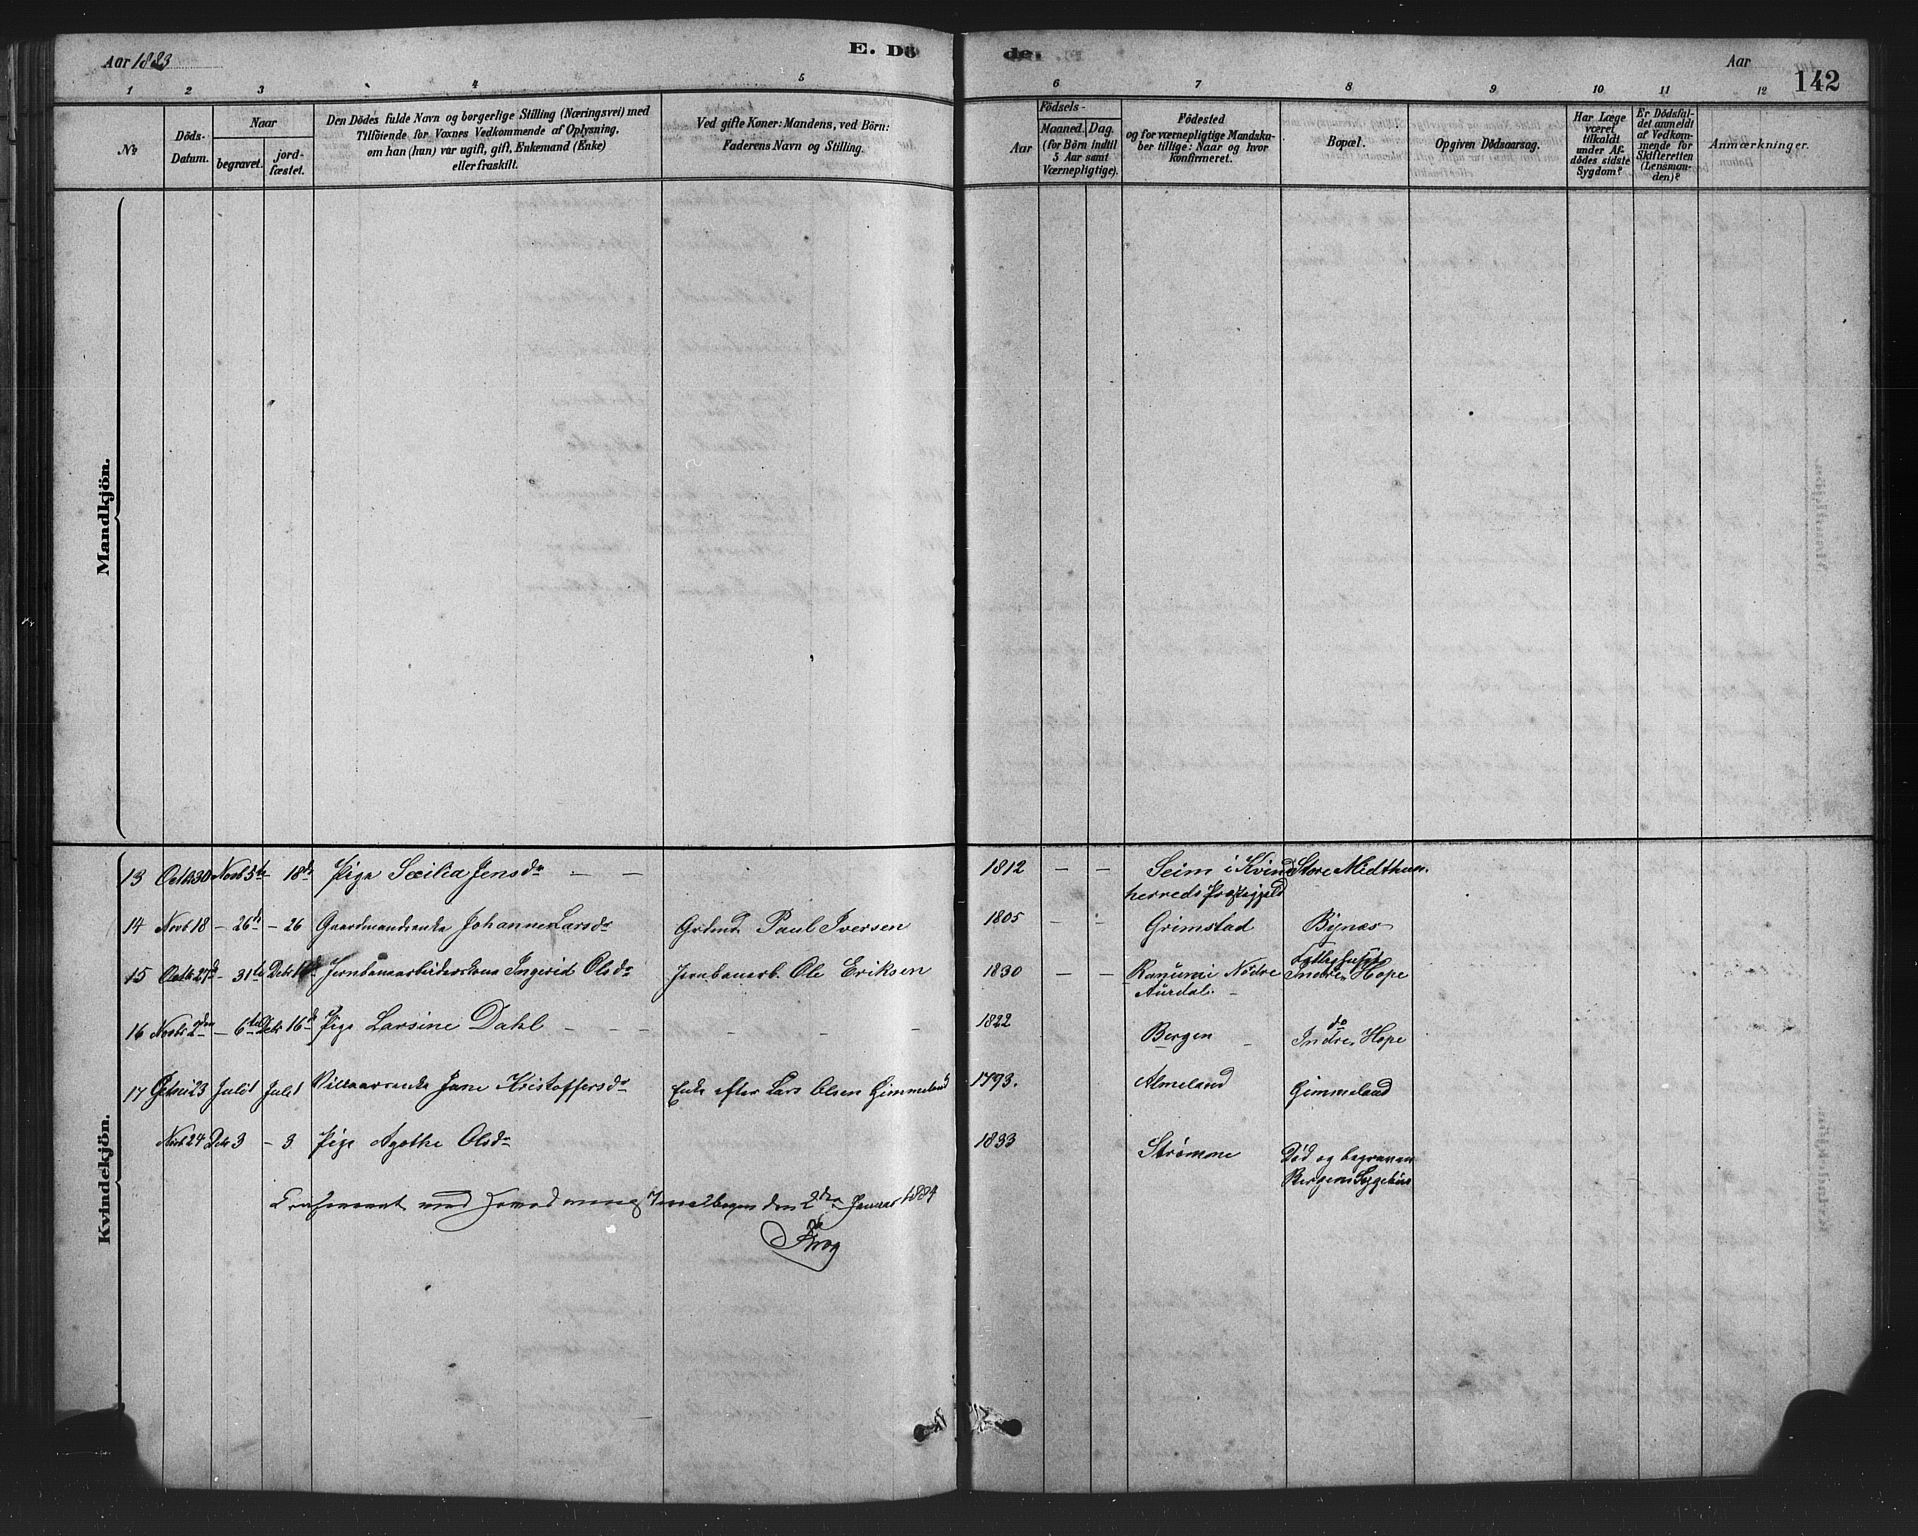 Aar 1883
E. Dö
de.
Aar
142
1 2 3 4 5 6 7 8 9 10 11 12
No
Döds-Datum.
Naar
begravet.
jord-fæstet.
Den Dödes fulde Navn og borgerlige Stilling (Næringsvei) med
Tilföiende for Voxnes Vedkommende af Oplysning,
om han (hun) var ugift, gift, Enkemand (Enke)
eller fraskilt.
Ved gifte Koner: Mandens, ved Börn:
Faderens Navn og Stilling.
Födsels-
Aar
Maaned. Dag.
(for Börn indtil
5 Aar samt
Værnepligtige).
Födested
og for værnepligtige Mandska-
ber tillige: Naar og hvor
konfirmeret.
Bopæl.
Opgiven Dödsaarsag.
Har Læge
været
tilkaldt
under Af-
dödes sidste
Sygdom?
Er Dödsfal-
det anmeldt
af Vedkom-
mende for
Skifteretten
(Lensman-
den)?
Anmærkninger.
Mandkjön.
Kvindekjön.
13 Octb 30 Novb 5te – 18de Pige Sæilia Jensdr – – 1812 – – Seim i Kvind Store Midthun.
herreds Præstegjeld
14 Novb 18 – 26de – 26 Gaardmandsenke Johanne Larsdr Grdmd Paul Iversen 1805 – – Grimstad Bynes
15 Octb 27d – 31te Jernbanearbeiderskone Ingerid Olsdr Jernbanearb. Ole Eriksen 1830 – – i Nödre Indre Hope
Aurdal.
16 Novb 2den – 6te 16d Pige Larsine Dahl – – – 1822 Bergen do Indre Hope
17 23 Juli 1 Juli 1 Jane Kristoffersdr Enke efter Lars Olsen Gimmeland 1793. Almeland Gimmeland
Novb 24 Debr 3 – 3 Pige Agathe Olsdr 1833 Strømme Död og begraven
Bergens Sygehus
med den 2den Januar 1884
Krog